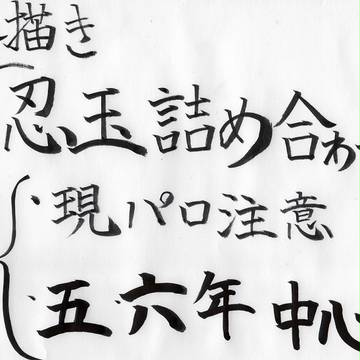 描き
忍玉詰め合わ
・現パロ注意
・五・六年中心